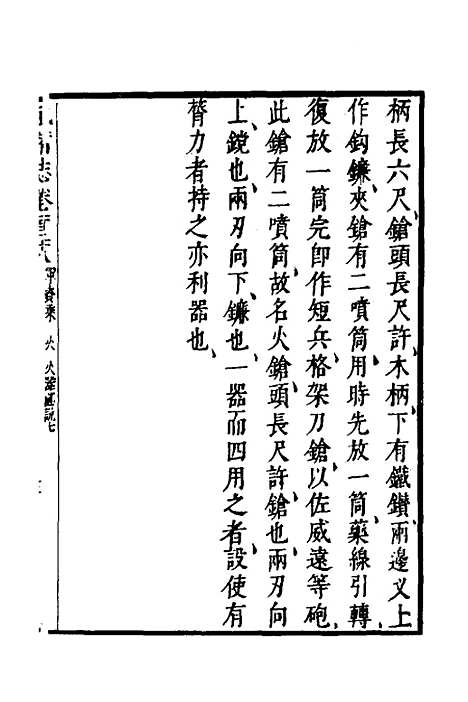 柄長六尺、鎗頭長尺許、木柄下有鐵鑽、兩邊义上
作鈎鐮、夾鎗有二噴筒、用時先放一筒、藥線引轉、
復放一筒完、卽作短兵、格架刀鎗、以佐威遠等砲、
此鎗有二噴筒、故名火鎗、頭長尺許、鎗也、兩刃向
上、鎲也、兩刃向下、鐮也、一器而四用之者、設使有
膂力者持之、亦利器也、
武備志卷一百二十八 軍資乘 火 火器圖說七